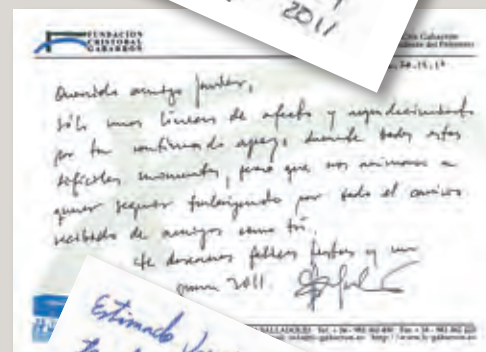 2011
FUNDACIÓN
CRISTÓBAL
GABARRÓN
Gabarron
del Patronato
Querido amigo
Sólo unas líneas de afecto y agradecimiento
por tu continuado apoyo durante todos estos
difíciles momentos, pero que nos animan a
querer seguir por todo el cariño
recibido de amigos como tú.
Te deseamos felices fiestas y un
2011.
Estimado
VALLADOLID Tel.: + 34 - 983 362 490 Fax + 34 - 983 362
http://www.